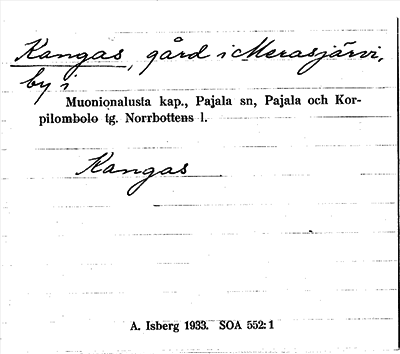 Kangas, gård i Merasjärvi,
by i
Muonionalusta kap., Pajala sn, Pajala och Kor-
pilombolo tg. Norrbottens l.
Kangas
A. Isberg 1933. SOA 552:1